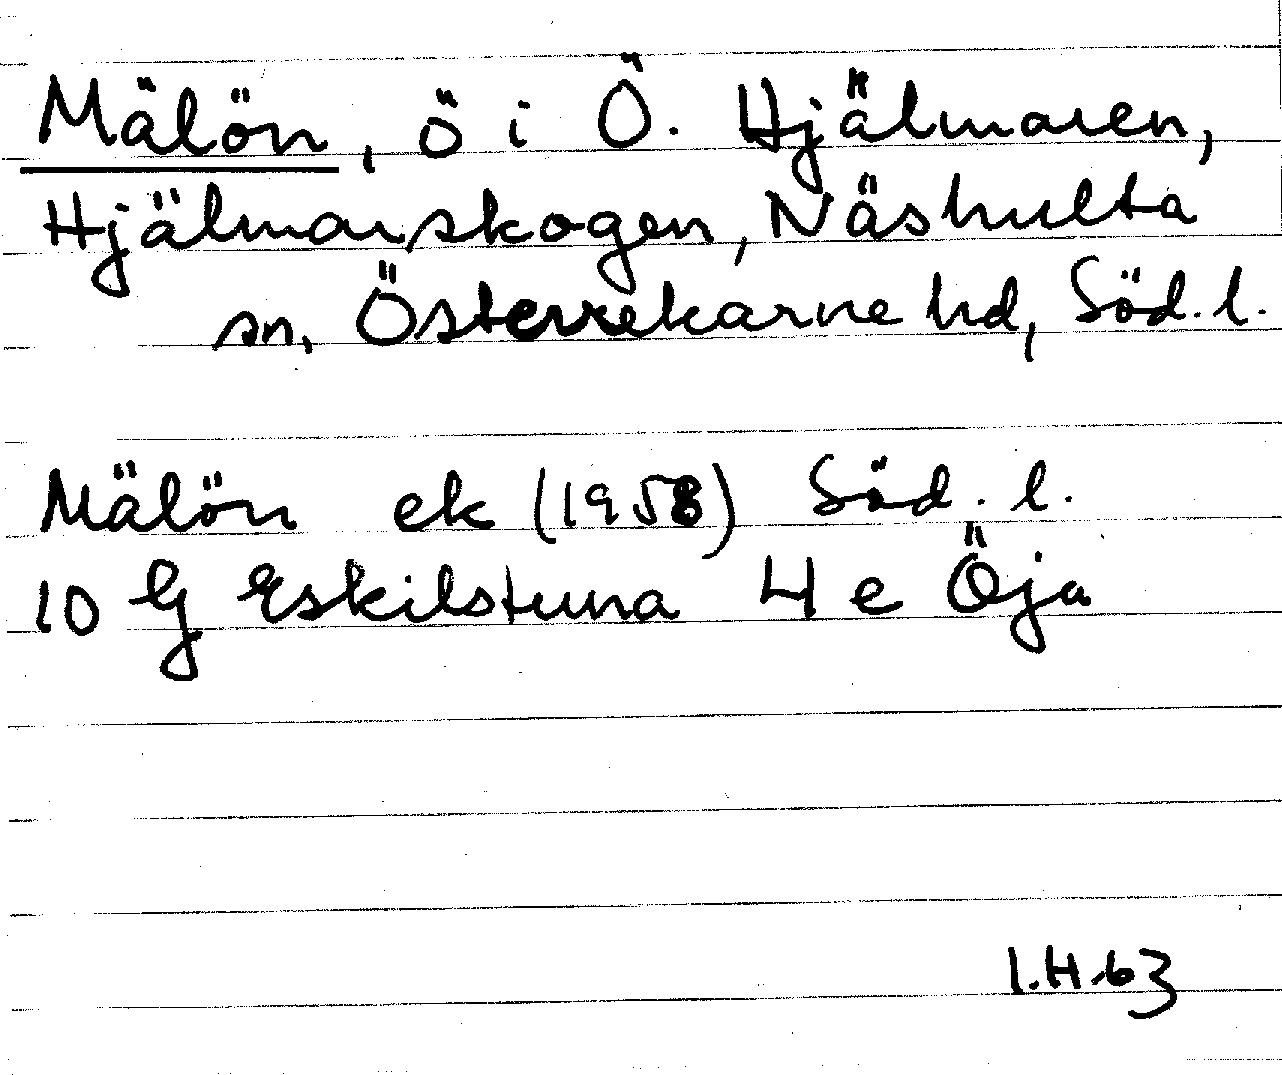 Mälön, ö i Ö. Hjälmaren,
Hjälmarskogen, Näshulta
sn, Österrekarne hd, Söd. l.
Mälön ek (1958) Söd. l.
10 G Eskilstuna 4 e Öja
I.H.63